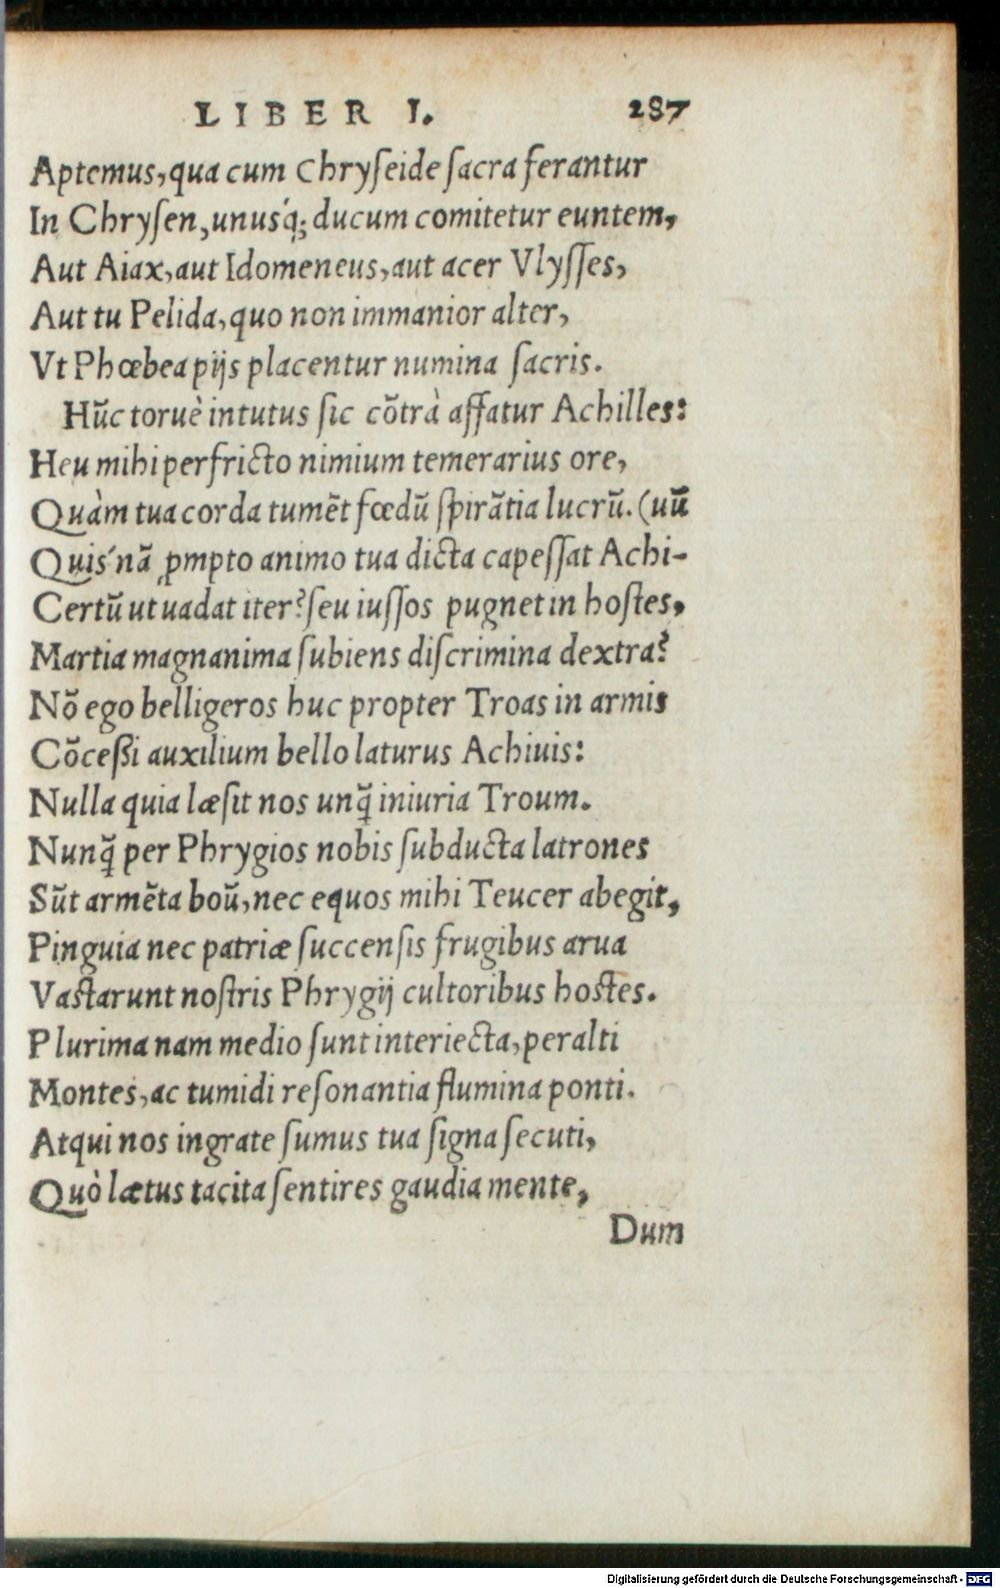 LIBER I. 287
Aptemus, qua cum Chryſeide ſacra ferantur
In Chryſen, unusq́; ducum comitetur euntem,
Aut Aiax, aut Idomeneus, aut acer Vlyſſes,
Aut tu Pelida, quo non immanior alter,
Vt Phœbea pijs placentur numina ſacris.
Hūc toruè intutus ſic cōtrà affatur Achilles:
Heu mihi perfricto nimium temerarius ore,
Quàm tua corda tumēt fœdū ſpirātia lucrū. (uū
Quis´nā ꝓmpto animo tua dicta capeſſat Achi-
Certū ut uadat iter? ſeu iuſſos pugnet in hoſtes,
Martia magnanima ſubiens diſcrimina dextra?
Nō ego belligeros huc propter Troas in armis
Cōceßi auxilium bello laturus Achiuis:
Nulla quia læſit nos unq̄ iniuria Troum.
Nunq̄ per Phrygios nobis ſubducta latrones
Sūt armēta boū, nec equos mihi Teucer abegit,
Pinguia nec patriæ ſuccenſis frugibus arua
Vaſtarunt noſtris Phrygij cultoribus hoſtes.
Plurima nam medio ſunt interiecta, peralti
Montes, ac tumidi reſonantia flumina ponti.
Atqui nos ingrate ſumus tua ſigna ſecuti,
Quò lætus tacita ſentires gaudia mente,
Dum
Digitalisierung gefördert durch die Deutsche Forschungsgemeinschaft - DFG